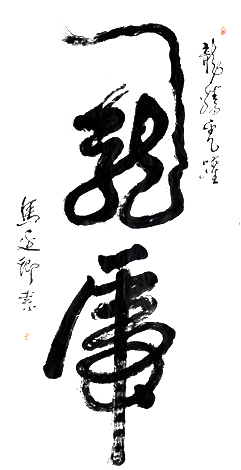 龍騰虎躍
龍虎
馬延卿書